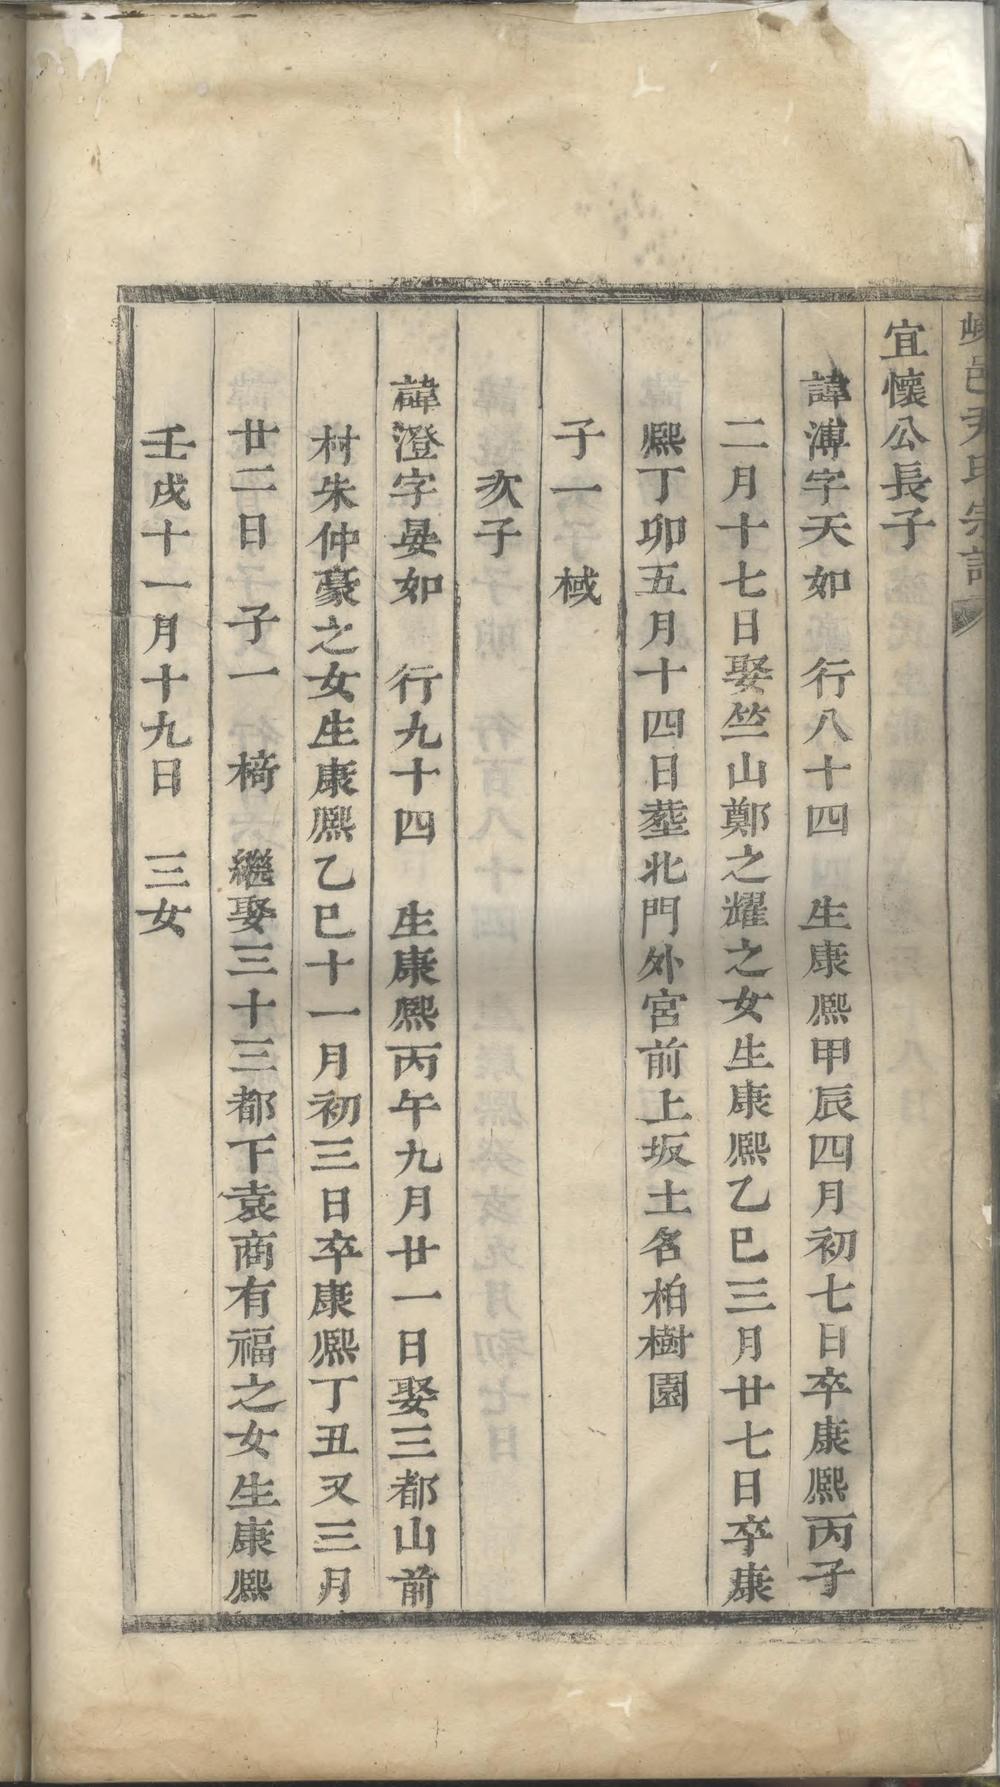 嵊邑尹氏宗譜
宜懷公長子
諱溥字天如 行八十四 生康熙甲辰四月初七日卒康熙丙子
二月十七日娶竺山鄭之耀之女生康熙乙巳三月廿七日卒康
熙丁卯五月十四日塟北門外宮前上坂土名柏樹園
子一 棫
次子
諱澄字晏如 行九十四 生康熙丙午九月廿一日娶三都山前
村朱仲豪之女生康熙乙巳十一月初三日卒康熙丁丑又三月
廿二日 子一 椅 繼娶三十三都下袁商有福之女生康熙
壬戌十一月十九日 三女